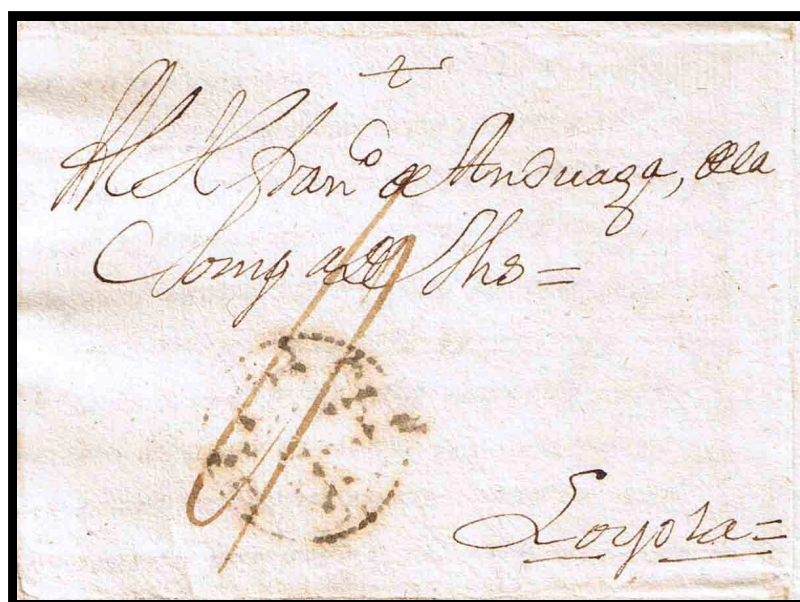 Al H Franco de Anduaga, dela
Comp a de Jhs =
Loyola =